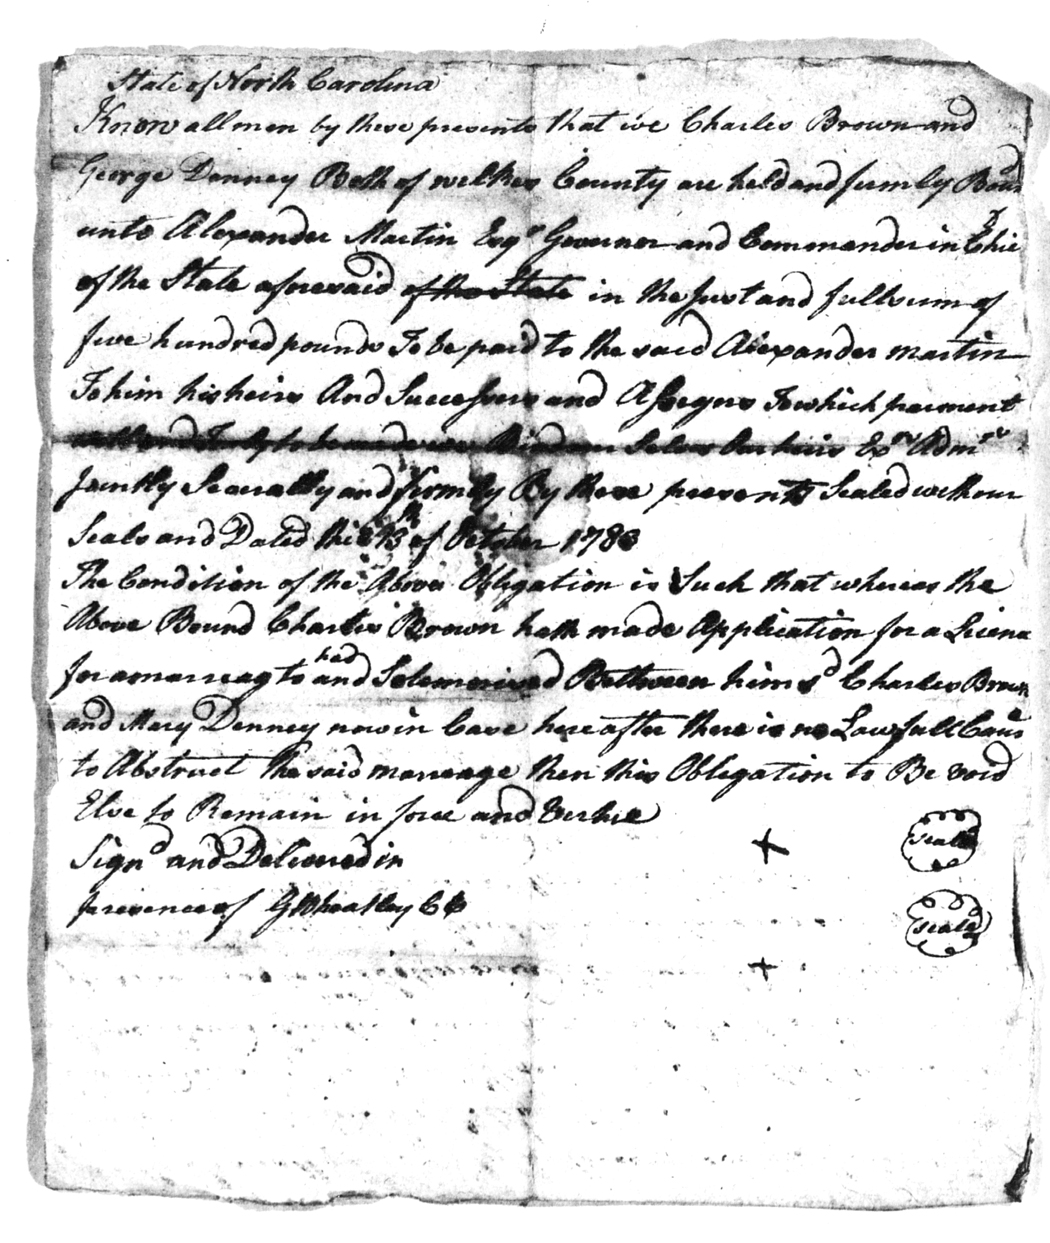 State of North Carolina
Know all men by these presents that we Charles Brown and
George Denney Both of wilkes County are held and firmly Boun
unto Alexander Martin Esqr Governor and Commander in Chief
of the State aforesaid of the State in the just and full sum of
five hundred pounds To be paid to the said Alexander martin
To him his heirs And Successors and Assigns To which payment
our heirs Exrs Admrs
Jointly Severally and firmly By these presents Sealed with our
Seals and Dated this of October 1783
The Condition of the Above Obligation is Such that whereas the
Above Bound Charles Brown hath made Application for a Licence
for a marreag to had and Solemnised Between him sd Charles Brown
and Mary Denney now in Case hereafter there is no Lawfull Caus
to Abstruct the said marreage then this Obligation to Be void
Else to Remain in force and Vertue
Signd and Delivered in
presence of G Wheatley CC
X
seal
X
seal